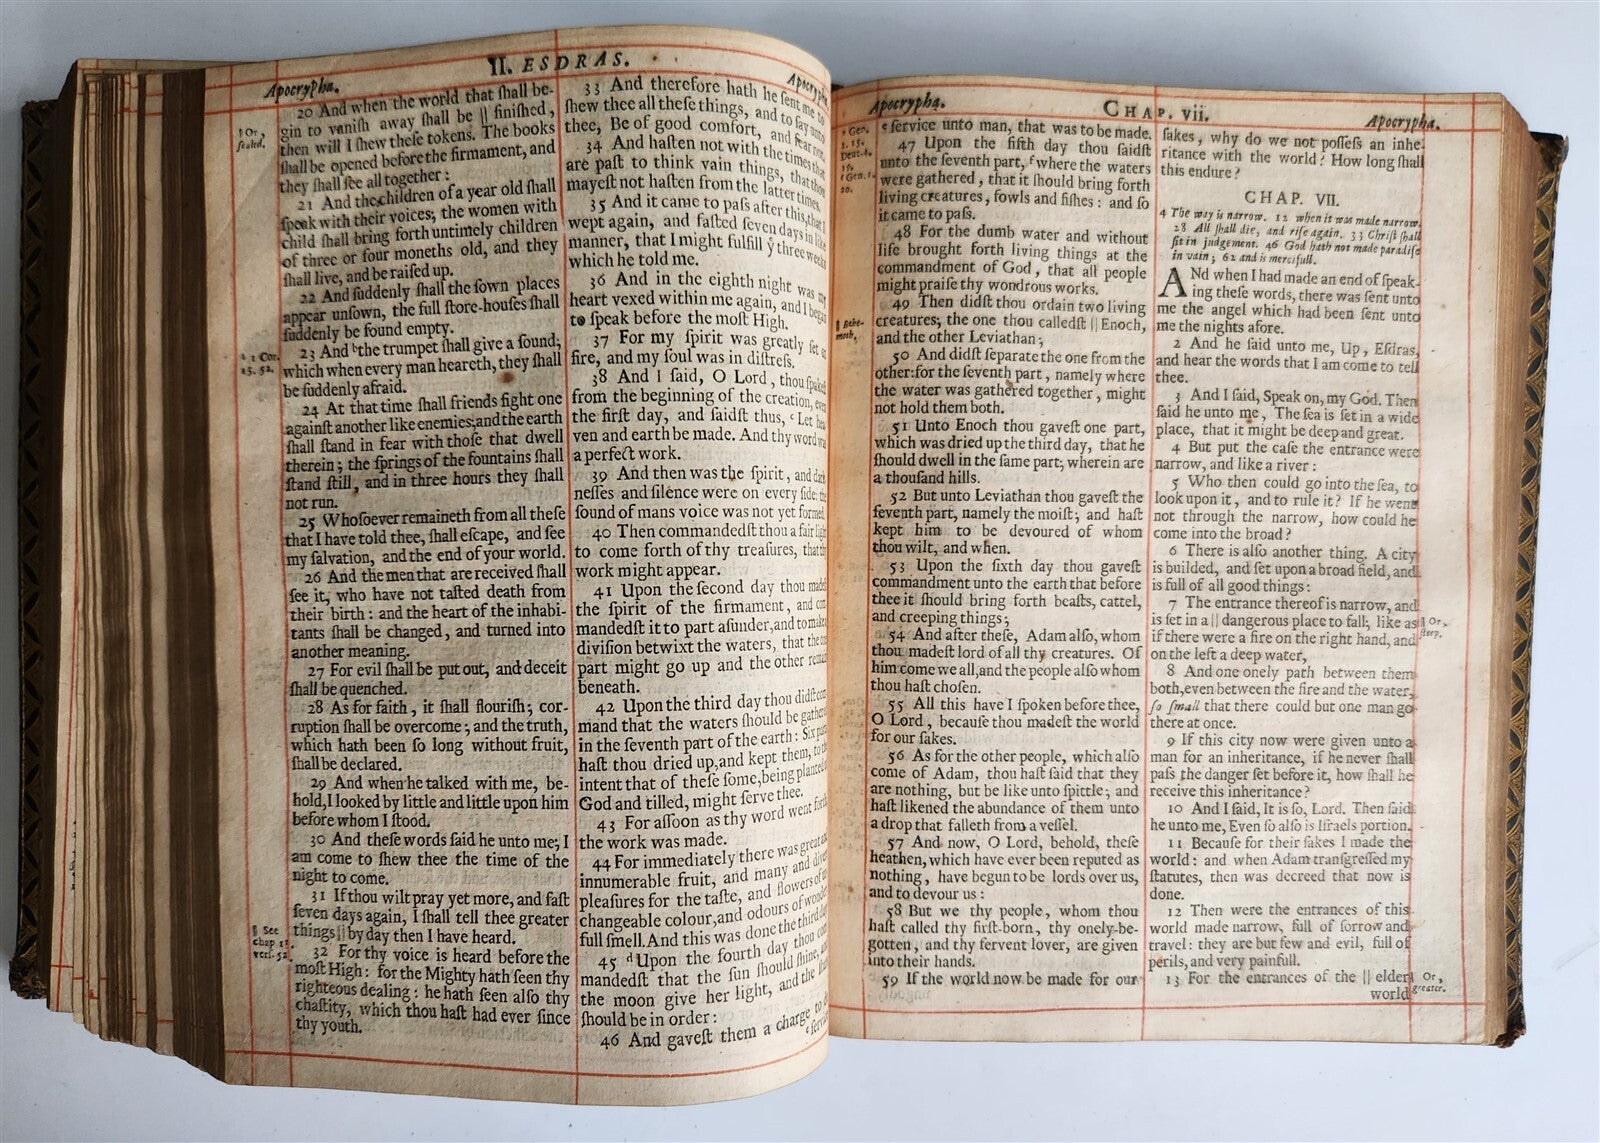 II. ESDRAS.
Apocrypha.
Apocrypha.
20 And when the world that shall be-
gin to vanish away shall be || finished,
then will I shew these tokens. The books
shall be opened before the firmament, and
they shall see all together:
21 And the children of a year old shall
speak with their voices; the women with
child shall bring forth untimely children
of three or four moneths old, and they
shall live, and be raised up.
22 And suddenly shall the sown places
appear unsown, the full store-houses shall
suddenly be found empty.
23 And ᵇthe trumpet shall give a sound;
which when every man heareth, they shall
be suddenly afraid.
24 At that time shall friends fight one
against another like enemies; and the earth
shall stand in fear with those that dwell
therein; the springs of the fountains shall
stand still, and in three hours they shall
not run.
25 Whosoever remaineth from all these
that I have told thee, shall escape, and see
my salvation, and the end of your world.
26 And the men that are received shall
see it, who have not tasted death from
their birth: and the heart of the inhabi-
tants shall be changed, and turned into
another meaning.
27 For evil shall be put out, and deceit
shall be quenched.
28 As for faith, it shall flourish; cor-
ruption shall be overcome; and the truth,
which hath been so long without fruit,
shall be declared.
29 And when he talked with me, be-
hold, I looked by little and little upon him
before whom I stood.
30 And these words said he unto me; I
am come to shew thee the time of the
night to come.
31 If thou wilt pray yet more, and fast
seven days again, I shall tell thee greater
things || by day then I have heard.
32 For thy voice is heard before the
most High: for the Mighty hath seen thy
righteous dealing: he hath seen also thy
chastity, which thou hast had ever since
thy youth.
|| Or,
sealed.
ᵇ 1 Cor.
15. 52.
|| See
chap 13.
vers. 52.
33 And therefore hath he sent me to
shew thee all these things, and to say unto
thee, Be of good comfort, and fear not,
34 And hasten not with the times that
are past to think vain things, that thou
mayest not hasten from the latter times.
35 And it came to pass after this, that I
wept again, and fasted seven days in like
manner, that I might fulfill ẏ three weeks
which he told me.
36 And in the eighth night was my
heart vexed within me again, and I began
to speak before the most High.
37 For my spirit was greatly set on
fire, and my soul was in distress.
38 And I said, O Lord, thou spakest
from the beginning of the creation, even
the first day, and saidst thus, ᶜ Let hea-
ven and earth be made. And thy word was
a perfect work.
39 And then was the spirit, and dark-
nesses and silence were on every side: the
sound of mans voice was not yet formed.
40 Then commandedst thou a fair light
to come forth of thy treasures, that thy
work might appear.
41 Upon the second day thou madest
the spirit of the firmament, and com-
mandedst it to part asunder, and to make
division betwixt the waters, that the one
part might go up and the other remain
beneath.
42 Upon the third day thou didst com-
mand that the waters should be gathered
in the seventh part of the earth: Six parts
hast thou dried up, and kept them, to the
intent that of these some, being planted of
God and tilled, might serve thee.
43 For assoon as thy word went forth
the work was made.
44 For immediately there was great and
innumerable fruit, and many and divers
pleasures for the taste, and flowers of un-
changeable colour, and odours of wonder-
full smell. And this was done the third day.
45 ᵈUpon the fourth day thou com-
mandedst that the sun should shine, and
the moon give her light, and the stars
should be in order:
46 And gavest them a charge to do
ᵉ service
Apocrypha.
CHAP. vii.
Apocrypha.
ᵉ service unto man, that was to be made.
47 Upon the fifth day thou saidst
unto the seventh part, ᶠwhere the waters
were gathered, that it should bring forth
living creatures, fowls and fishes: and so
it came to pass.
48 For the dumb water and without
life brought forth living things at the
commandment of God, that all people
might praise thy wondrous works.
49 Then didst thou ordain two living
creatures, the one thou calledst || Enoch,
and the other Leviathan;
50 And didst separate the one from the
other: for the seventh part, namely where
the water was gathered together, might
not hold them both.
51 Unto Enoch thou gavest one part,
which was dried up the third day, that he
should dwell in the same part, wherein are
a thousand hills.
52 But unto Leviathan thou gavest the
seventh part, namely the moist; and hast
kept him to be devoured of whom
thou wilt, and when.
53 Upon the sixth day thou gavest
commandment unto the earth that before
thee it should bring forth beasts, cattel,
and creeping things;
54 And after these, Adam also, whom
thou madest lord of all thy creatures. Of
him come we all, and the people also whom
thou hast chosen.
55 All this have I spoken before thee,
O Lord, because thou madest the world
for our sakes.
56 As for the other people, which also
come of Adam, thou hast said that they
are nothing, but be like unto spittle; and
hast likened the abundance of them unto
a drop that falleth from a vessel.
57 And now, O Lord, behold, these
heathen, which have ever been reputed as
nothing, have begun to be lords over us,
and to devour us:
58 But we thy people, whom thou
hast called thy first-born, thy onely-be-
gotten, and thy fervent lover, are given
into their hands.
59 If the world now be made for our
ᵉ Gen.
1. 15.
Deut. 4.
19.
ᶠ Gen. 1.
20.
|| Behe-
moth,
sakes, why do we not possess an inhe-
ritance with the world? How long shall
this endure?
CHAP. VII.
4 The way is narrow. 12 when it was made narrow.
28 All shall die, and rise again. 33 Christ shall
sit in judgement. 46 God hath not made paradise
in vain; 62 and is mercifull.
ANd when I had made an end of speak-
ing these words, there was sent unto
me the angel which had been sent unto
me the nights afore.
2 And he said unto me, Up, Esdras,
and hear the words that I am come to tell
thee.
3 And I said, Speak on, my God. Then
said he unto me, The sea is set in a wide
place, that it might be deep and great.
4 But put the case the entrance were
narrow, and like a river:
5 Who then could go into the sea, to
look upon it, and to rule it? If he went
not through the narrow, how could he
come into the broad?
6 There is also another thing. A city
is builded, and set upon a broad field, and
is full of all good things:
7 The entrance thereof is narrow, and
is set in a || dangerous place to fall; like as
if there were a fire on the right hand, and
on the left a deep water,
8 And one onely path between them
both, even between the fire and the water,
so small that there could but one man go
there at once.
9 If this city now were given unto a
man for an inheritance, if he never shall
pass the danger set before it, how shall he
receive this inheritance?
10 And I said, It is so, Lord. Then said
he unto me, Even so also is Israels portion.
11 Because for their sakes I made the
world: and when Adam transgressed my
statutes, then was decreed that now is
done.
12 Then were the entrances of this
world made narrow, full of sorrow and
travel: they are but few and evil, full of
perils, and very painfull.
13 For the entrances of the || elder
world
|| Or,
steep.
|| Or,
greater.